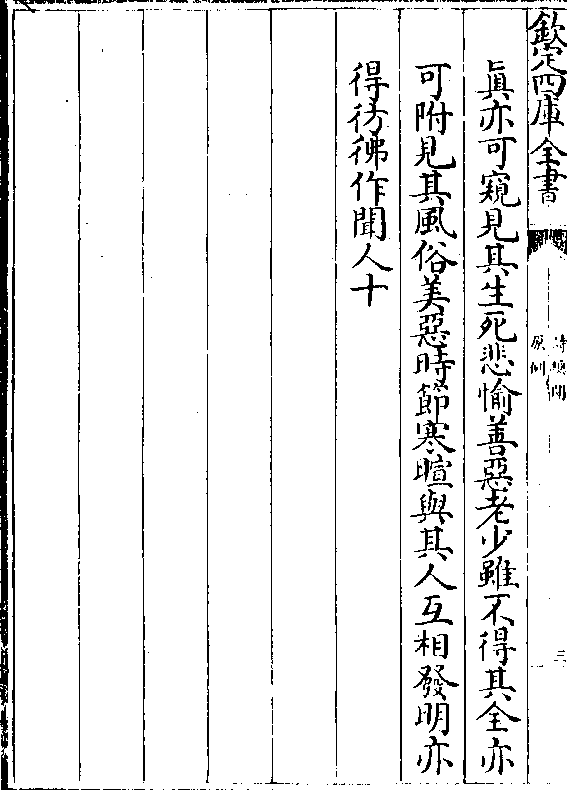 欽定四庫全書
眞亦可窺見其生死悲愉善惡老少雖不得其全亦
可附見其風俗美惡時節寒暄與其人互相發明亦
得彷彿作聞人十
詩總聞
原例
三